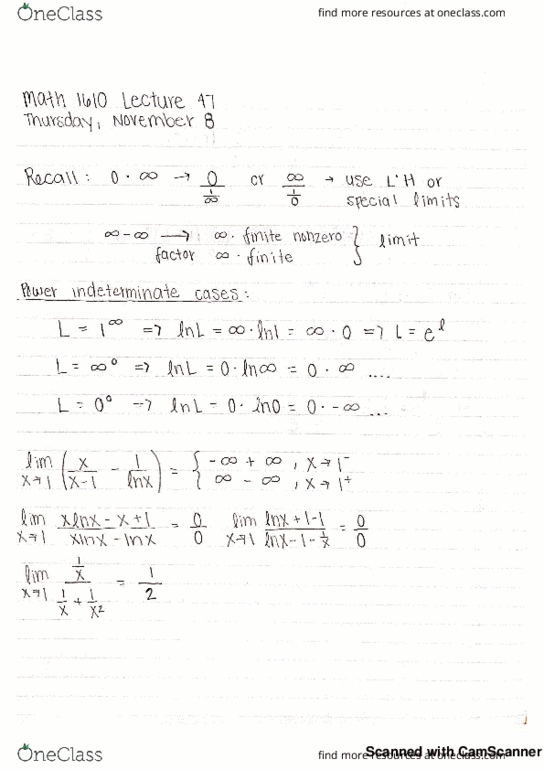 OneClass find more resources at oneclass.com
Math 1610 Lecture 47
Thursday, November 8
Recall: 0 · ∞ → 0/(1/∞) or ∞/(1/0) → use L'H or
special limits
∞ - ∞ → : ∞ · finite nonzero } limit
factor ∞ · finite
Power indeterminate cases:
L = 1^∞ => lnL = ∞ · ln1 = ∞ · 0 => L = e^l
L = ∞^0 => lnL = 0 · ln∞ = 0 · ∞ ....
L = 0^0 => lnL = 0 · ln0 = 0 · -∞ ...
lim x→1 (x/(x-1) - 1/lnx) = { -∞ + ∞, x→1^-
∞ - ∞, x→1^+
lim x→1 (xlnx - x + 1)/(xlnx - lnx) = 0/0 lim x→1 (lnx + 1 - 1)/(lnx - 1 - 1/x) = 0/0
lim x→1 (1/x)/(1/x + 1/x²) = 1/2
OneClass find more resources at oneclass.com
Scanned with CamScanner